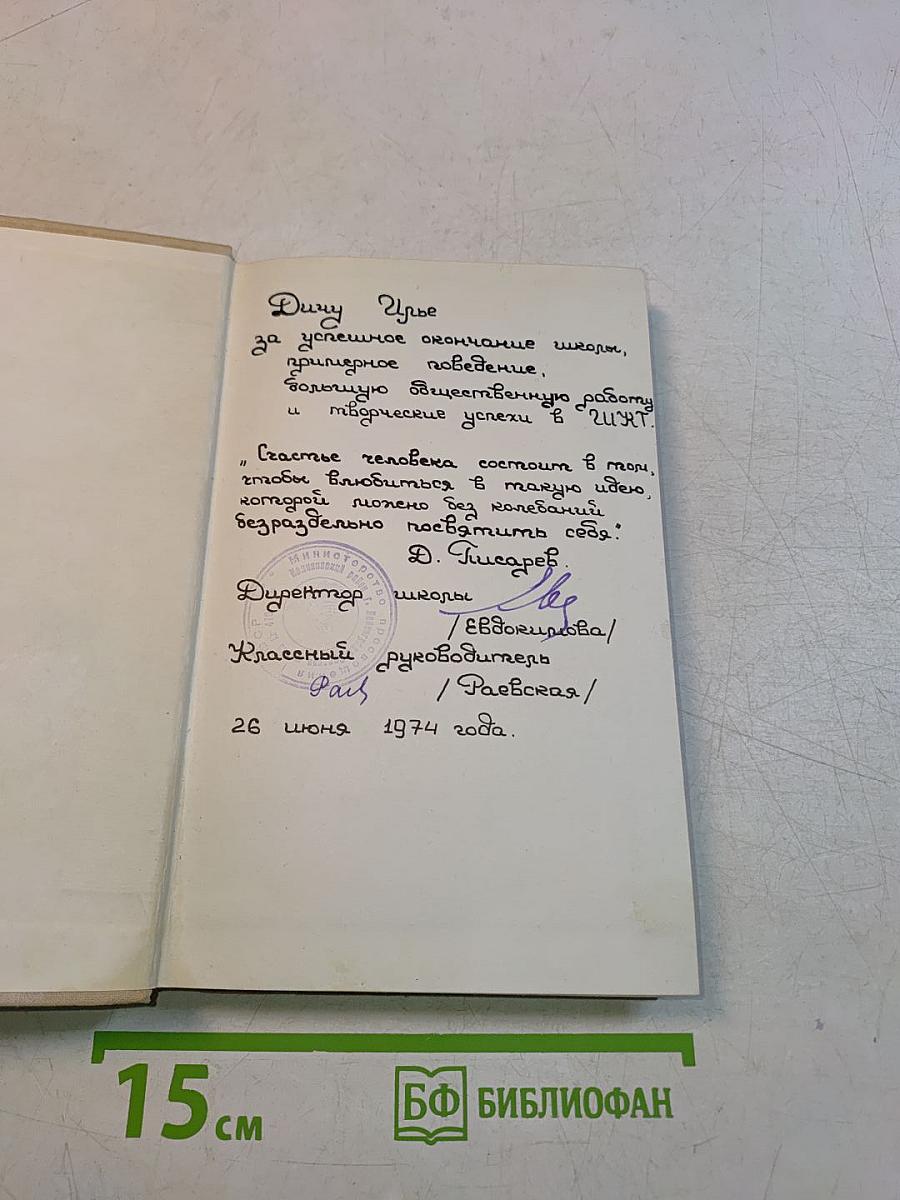 Дичу Илье
за успешное окончание школы,
примерное поведение,
большую общественную работу
и творческие успехи в ШКТ.
„Счастье человека состоит в том,
чтобы влюбиться в такую идею,
которой можно без колебаний
безраздельно посвятить себя".
Д. Писарев.
Министерство просвещения
Директор школы
/Евдокимова/
Классный руководитель
/Раевская/
26 июня 1974 года.
15 см
БФ БИБЛИОФАН